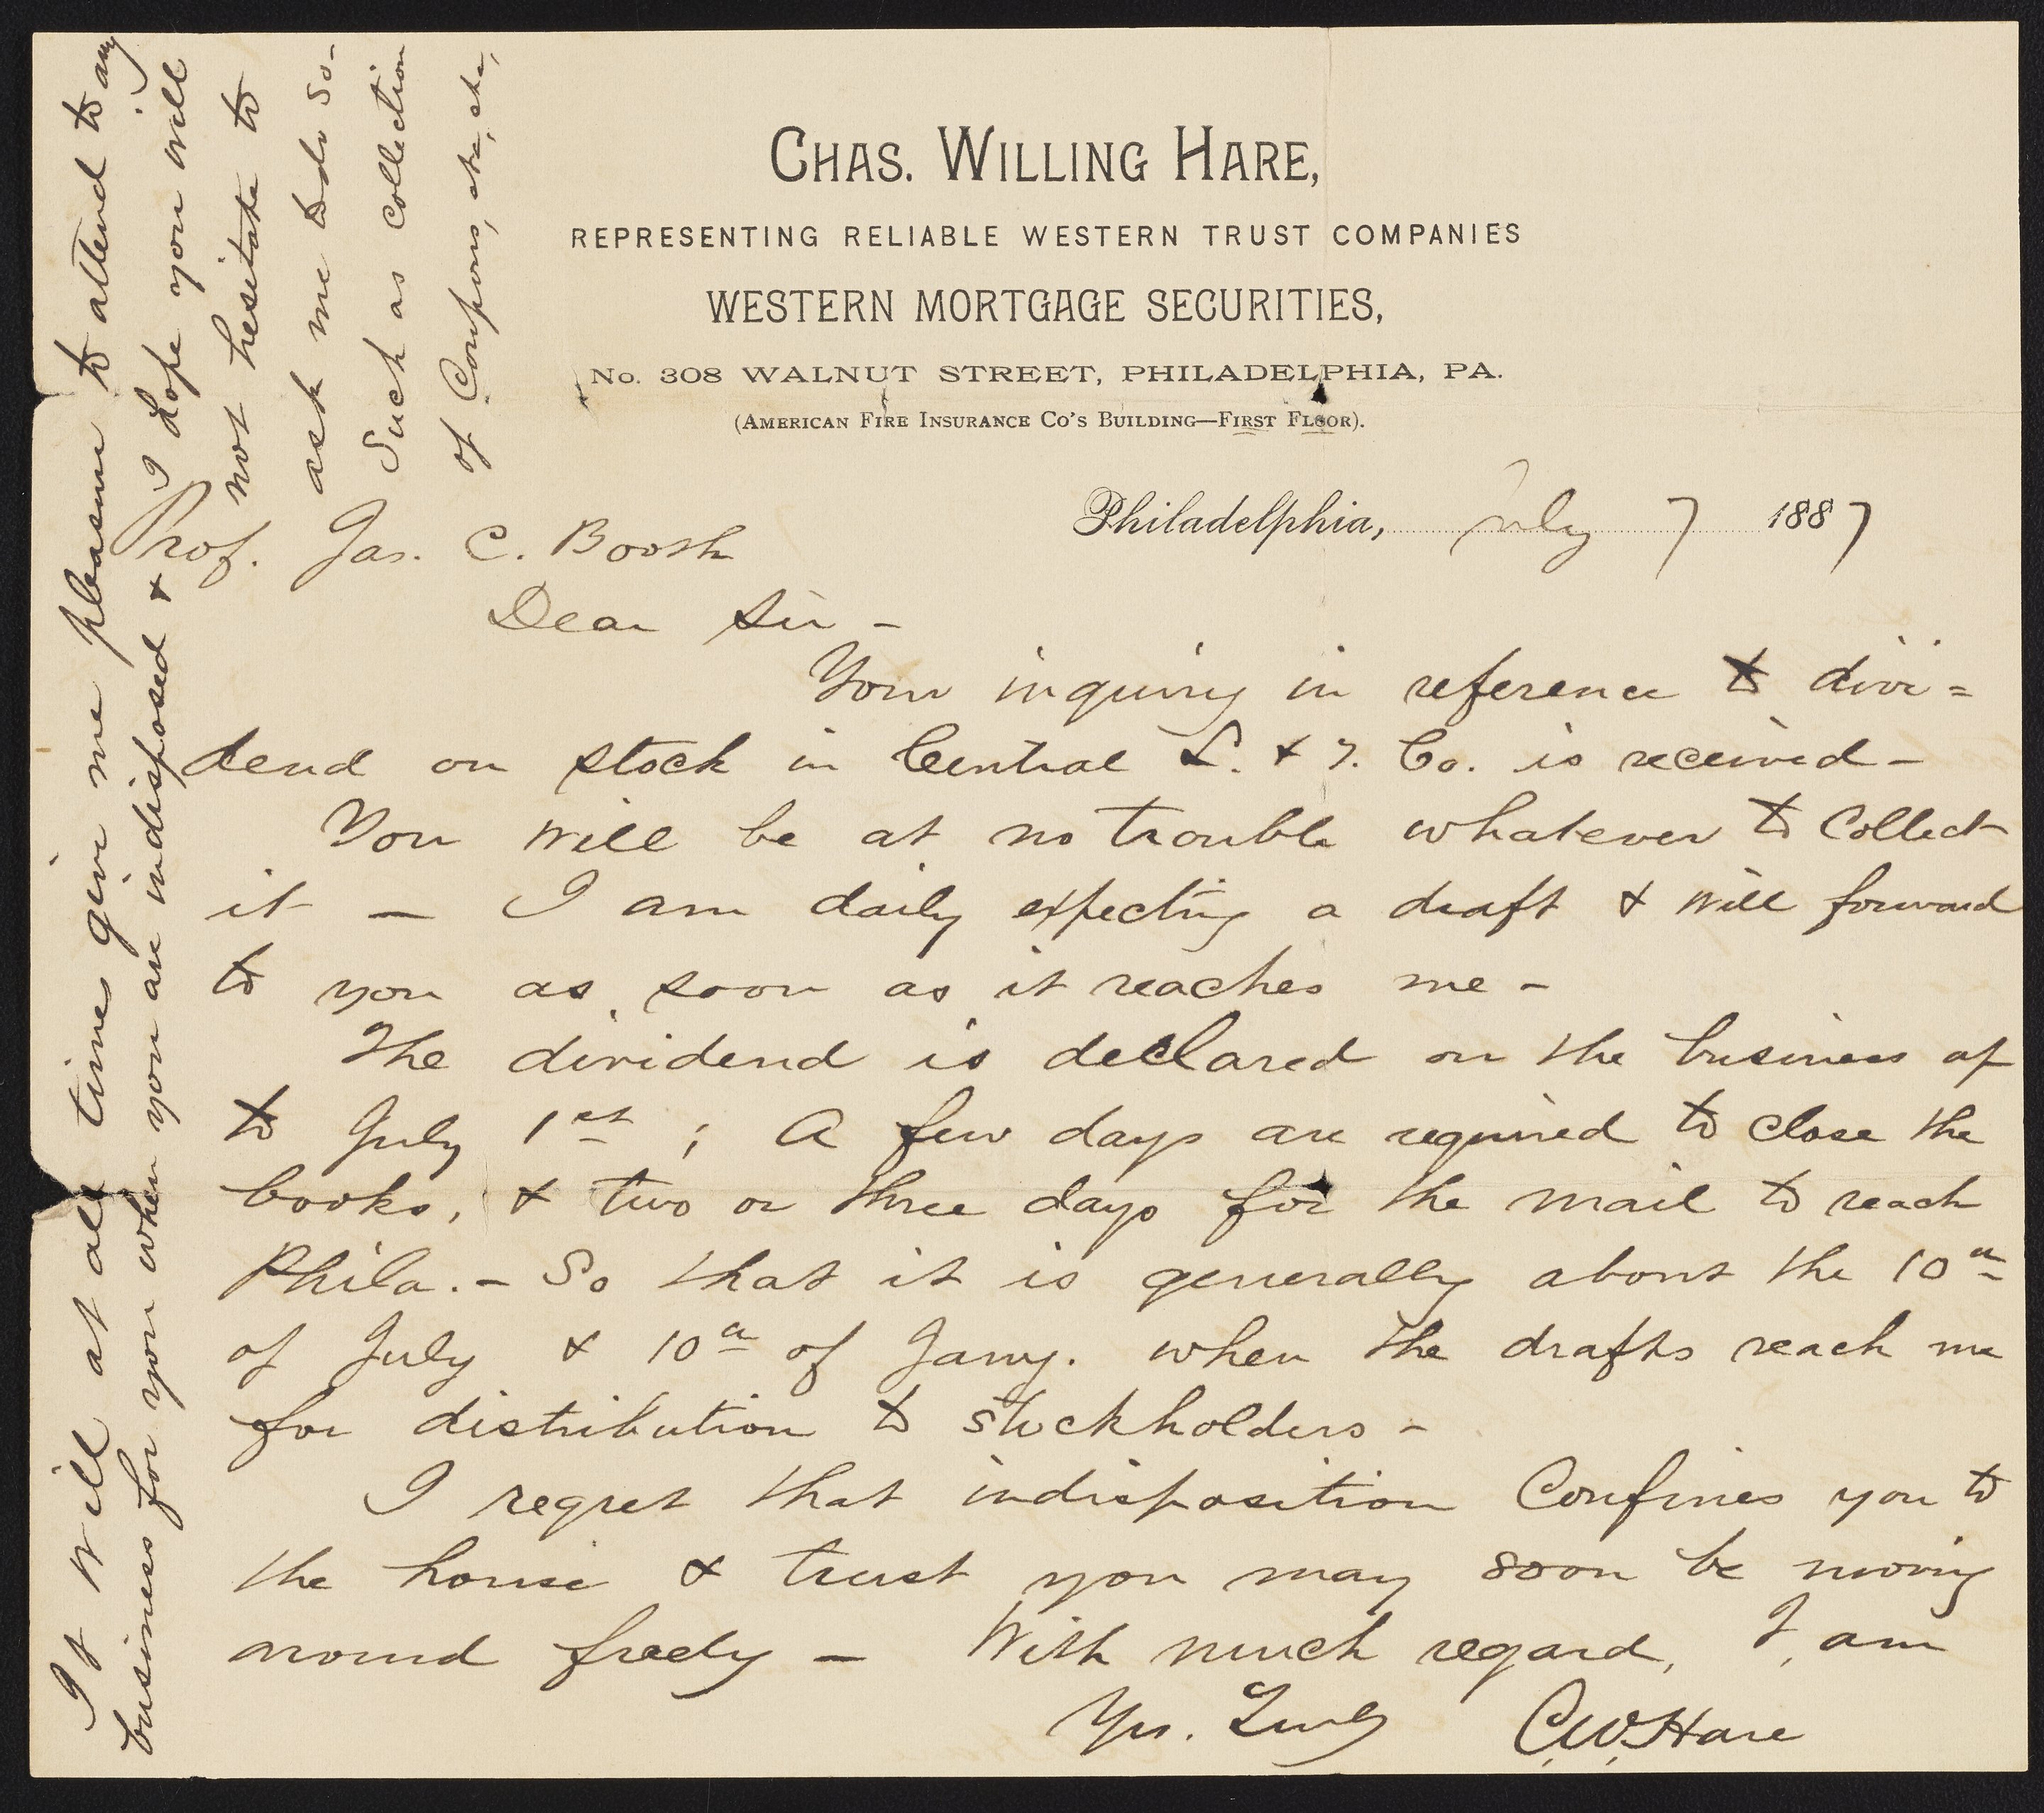 CHAS. WILLING HARE,
REPRESENTING RELIABLE WESTERN TRUST COMPANIES
WESTERN MORTGAGE SECURITIES,
No. 308 WALNUT STREET, PHILADELPHIA, PA.
(AMERICAN FIRE INSURANCE CO'S BUILDING—FIRST FLOOR).
Philadelphia, July 7 1887
Prof. Jas. C. Booth
Dear Sir -
Your inquiry in reference to divi=
dend on stock in Central L. & T. Co. is received -
You will be at no trouble whatever to collect
it - I am daily expecting a draft & will forward
to you as soon as it reaches me -
The dividend is declared on the business up
to July 1st ; A few days are required to close the
books, & two or three days for the mail to reach
Phila. - So that it is generally about the 10th
of July & 10th of Jany. when the drafts reach me
for distribution to stockholders -
I regret that indisposition confines you to
the house & trust you may soon be moving
around freely - With much regard, I am
Yrs. Truly C.W. Hare
It will at all times give me pleasure to attend to any
business for you when you are indisposed & I hope you will
not hesitate to
ask me to do so -
Such as collection
of Coupons, etc, etc,